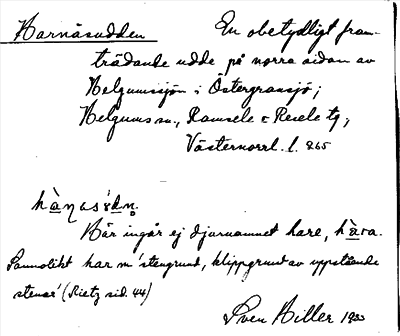 Harnäsudden En obetydligt fram-
trädande udde på norra sidan av
Helgumssjön i Östergransjö;
Helgums sn., Ramsele & Resele tg;
Västernorrl. l. 265
Här ingår ej djurnamnet hare, hàra.
Sannolikt har m 'stengrund, klippgrund av uppstående
stenar' (Rietz sid. 44)
Sven Hiller 1930